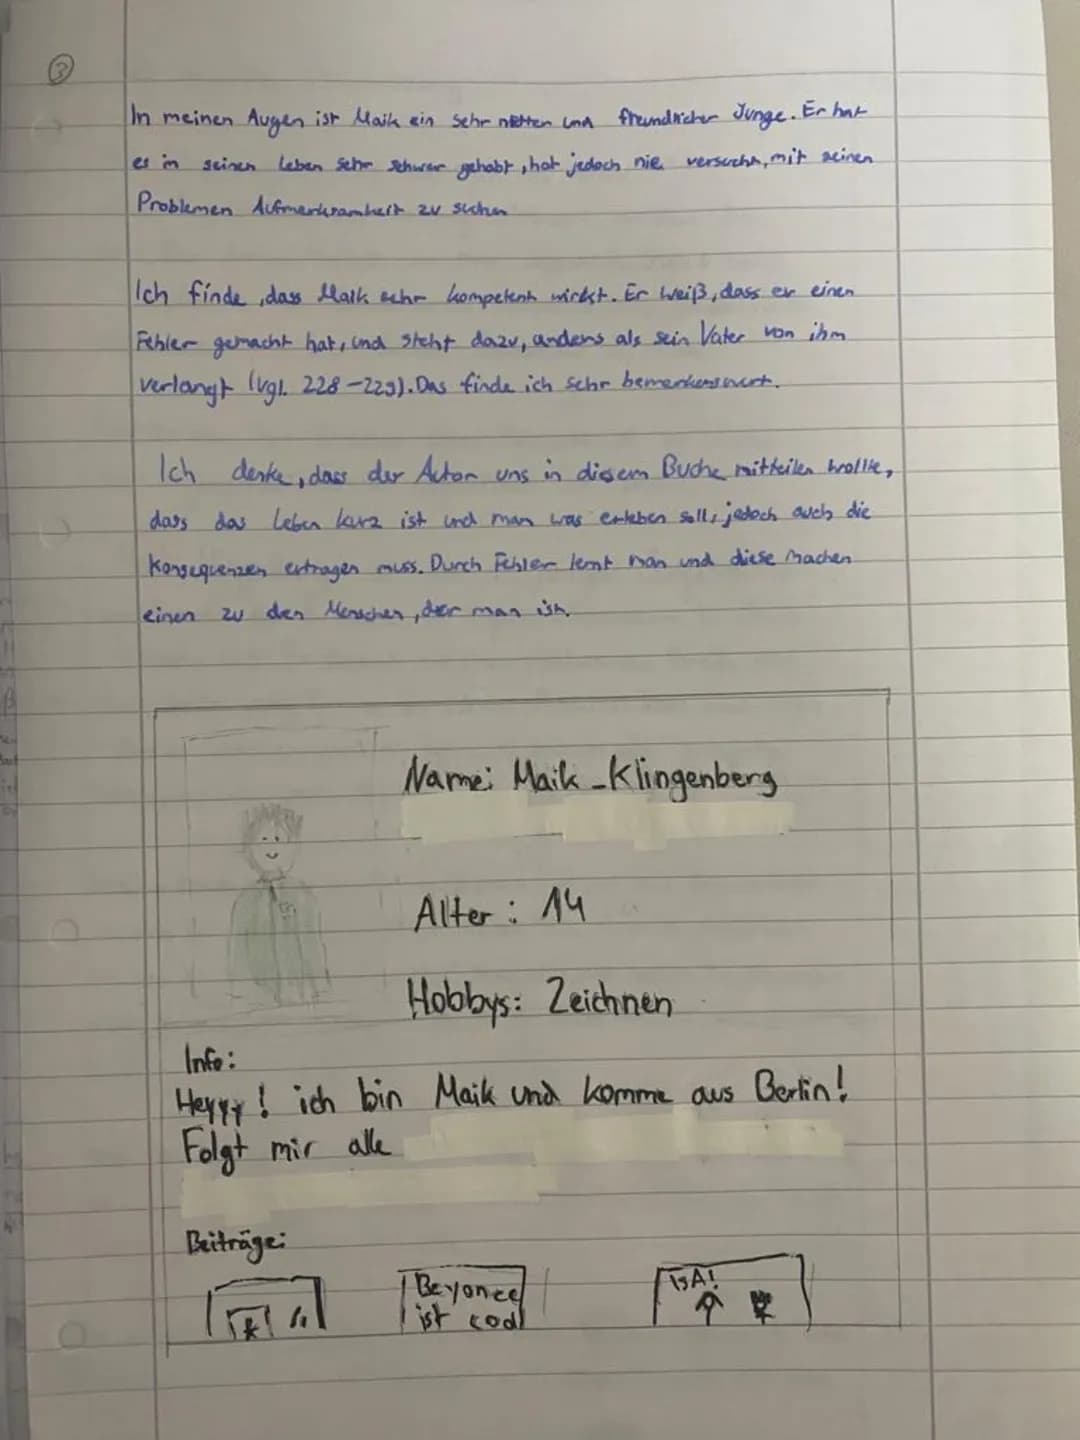 3
In meinen Augen ist Maik ein sehr netter und freundlicher Junge. Er hat
es in seinen Leben sehr schwer gehabt, hat jedoch nie versucht, mit seinen
Problemen Aufmerksamkeit zu suchen
Ich finde, dass Maik sehr kompetent wirkt. Er weiß, dass er einen
Fehler gemacht hat, und steht dazu, anders als sein Vater von ihm
verlangt (vgl. 228-229). Das finde ich sehr bemerkenswert.
Ich denke, dass der Autor uns in diesem Buche mitteilen wollte,
dass das Leben kurz ist und man was erleben soll, jedoch auch die
Konsequenzen ertragen muss. Durch Fehler lernt man und diese machen
einen zu den Menschen, der man ist.
Name: Maik_Klingenberg
Alter: 14
Hobbys: Zeichnen
Info:
Heyyy! ich bin Maik und komme aus Berlin!
Folgt mir alle
Beiträge:
Beyonce
ist